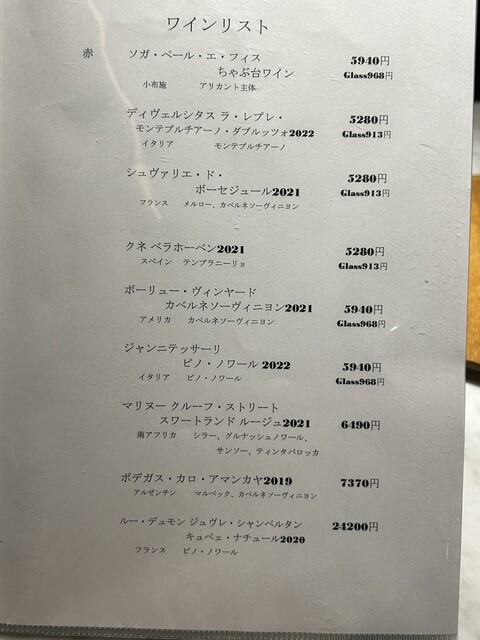 ワインリスト
赤 ソガ・ペール・エ・フィス 5940円
ちゃぶ台ワイン Glass968円
小布施 アリカント主体
ディヴェルシタス ラ・レプレ・ 5280円
モンテプルチアーノ・ダブルッツォ2022 Glass913円
イタリア モンテプルチアーノ
シュヴァリエ・ド・ 5280円
ボーセジュール2021 Glass913円
フランス メルロー、カベルネソーヴィニヨン
クネ ベラホーベン2021 5280円
スペイン テンプラニーリョ Glass913円
ボーリュー・ヴィンヤード
カベルネソーヴィニヨン2021 5940円
アメリカ カベルネソーヴィニヨン Glass968円
ジャンニテッサーリ
ピノ・ノワール 2022 5940円
イタリア ピノ・ノワール Glass968円
マリヌー クルーフ・ストリート
スワートランド ルージュ2021 6490円
南アフリカ シラー、グルナッシュノワール、
サンソー、ティンタバロッカ
ボデガス・カロ・アマンカヤ2019 7370円
アルゼンチン マルベック、カベルネソーヴィニヨン
ルー・デュモン ジュヴレ・シャンベルタン 24200円
キュベェ・ナチュール2020
フランス ピノ・ノワール